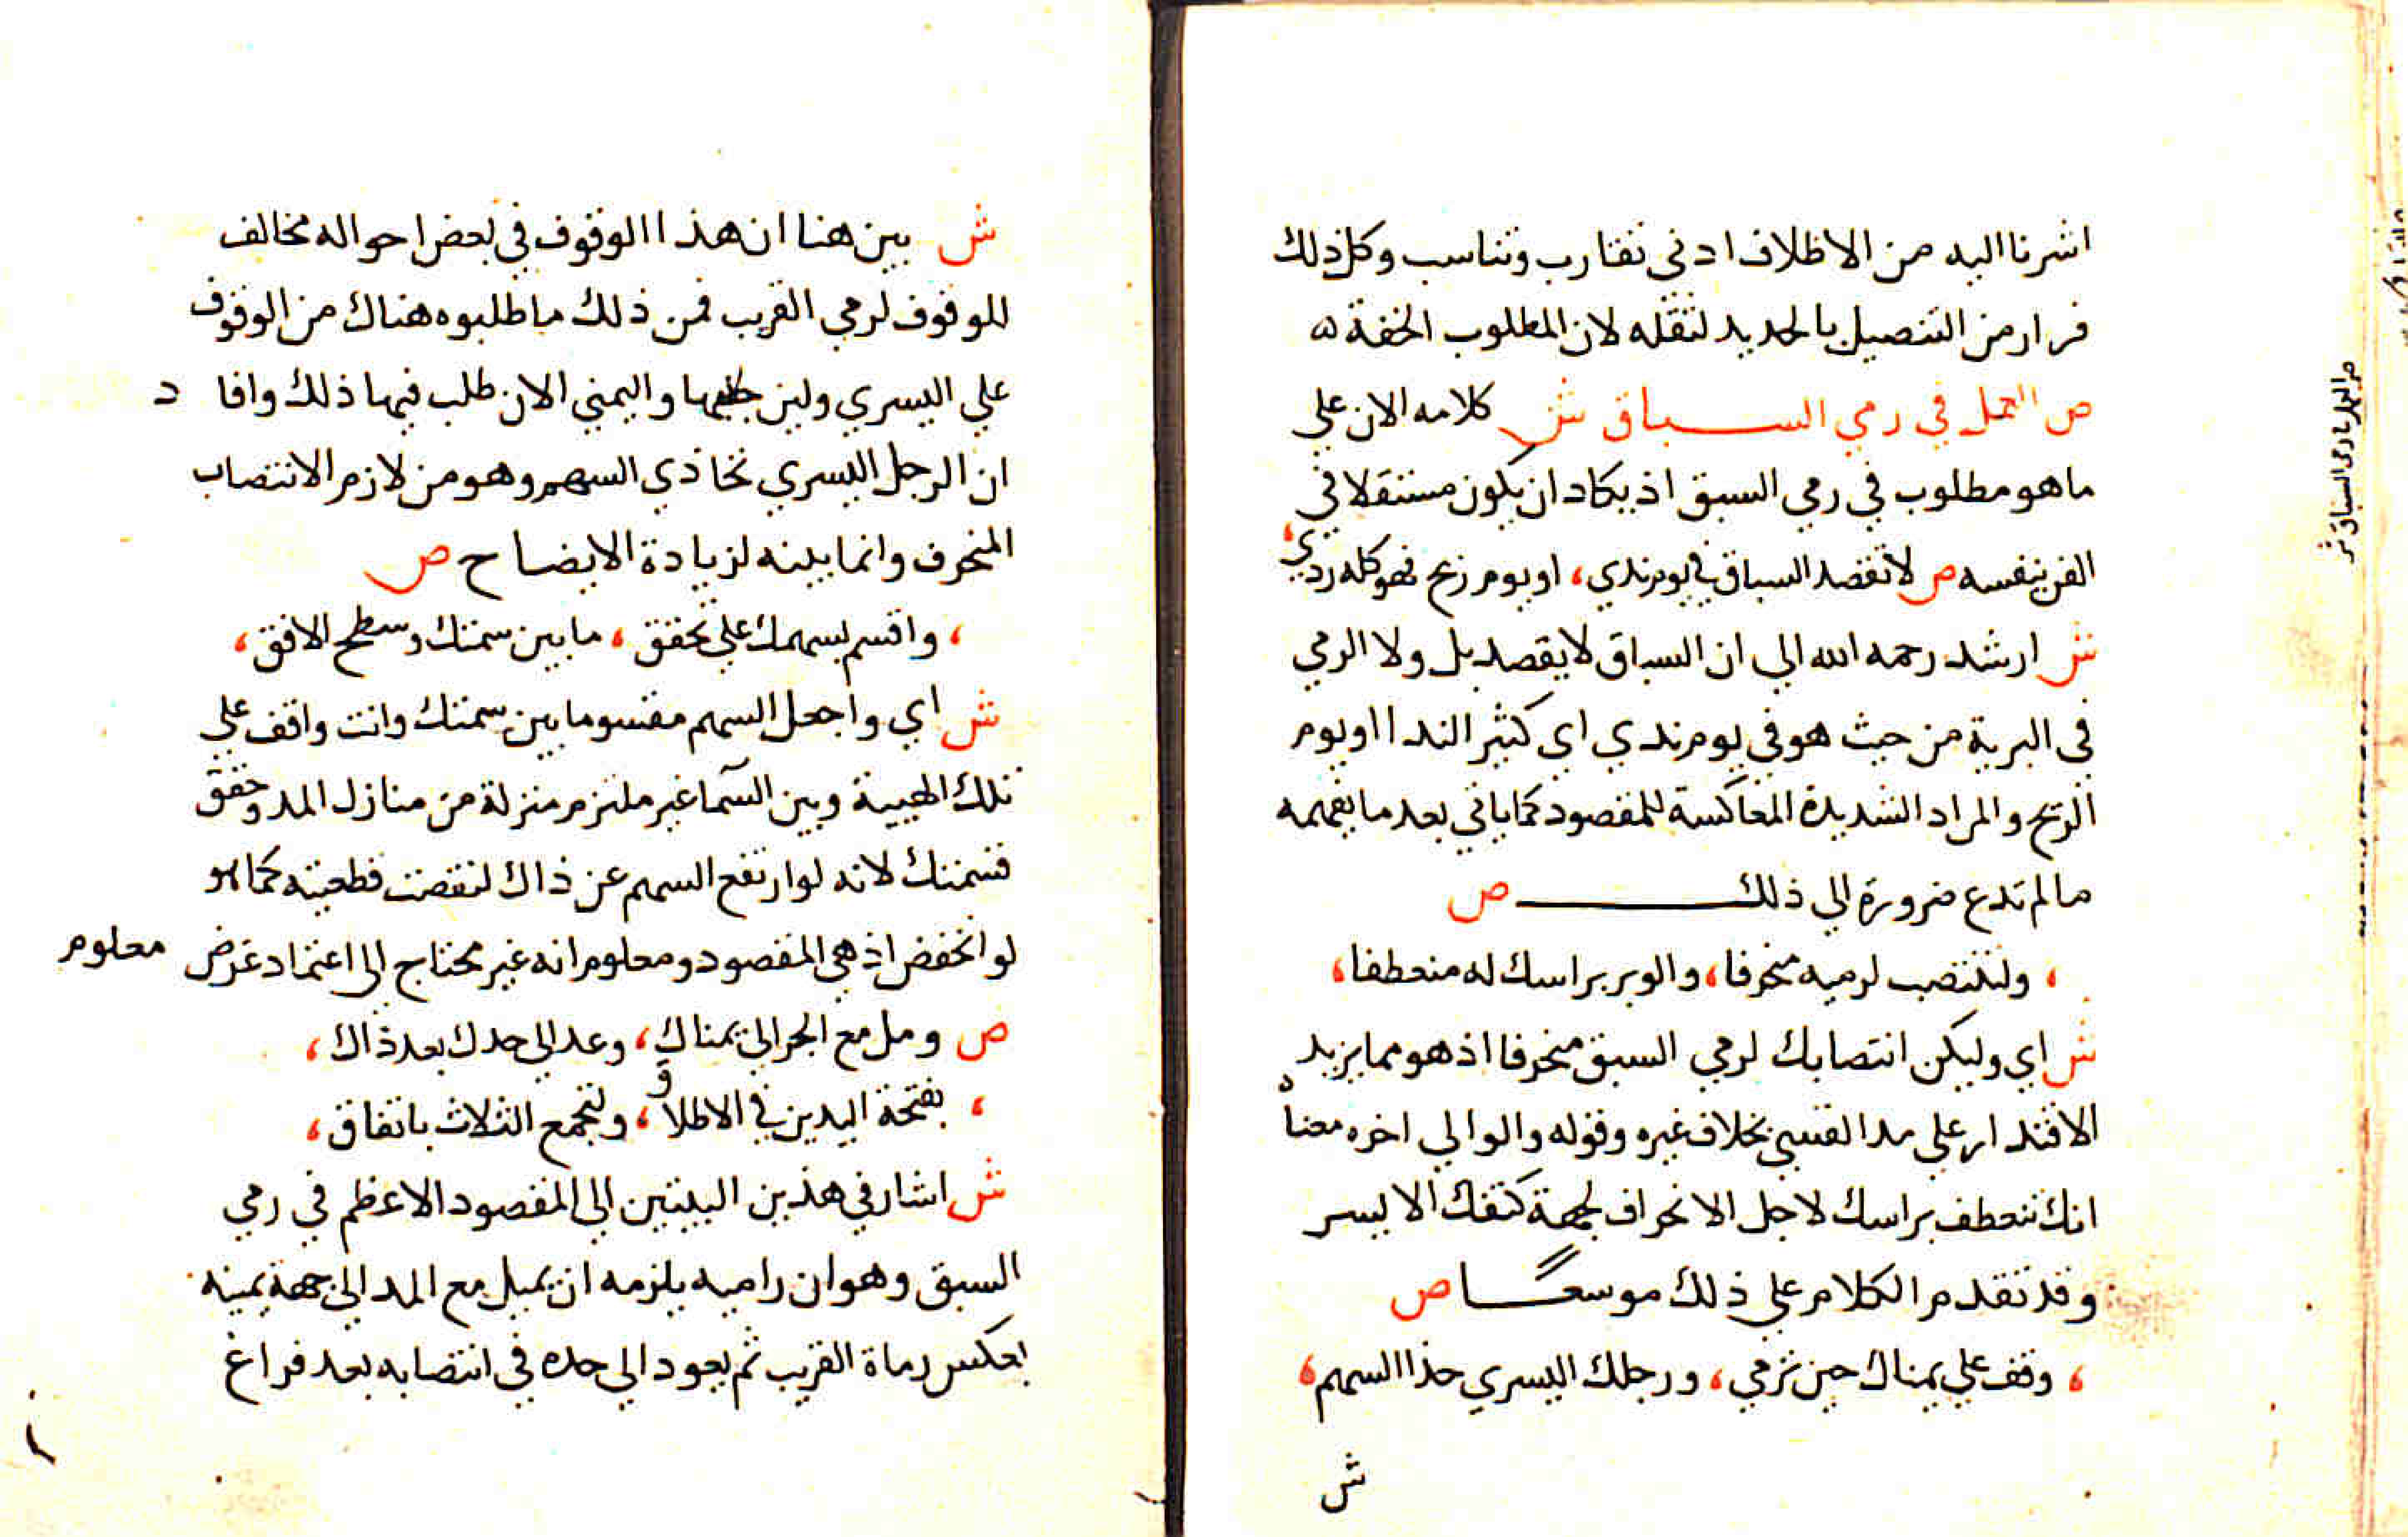 اشرنا اليه من الاظلاف ادني تقارب وتناسب وكل ذلك
فرار من التنصيل بالحديد لثقله لان المطلوب الخفة ه
ص العمل في رمي الســباق ش كلامه الان علي
ما هو مطلوب في رمي السبق اذ يكاد ان يكون مستقلا في
الفن بنفسه ص لا تقصد السباق في يوم ندي، او يوم ريح فهو كله ردي،
ش ارشد رحمه الله الي ان السباق لا يقصد بل ولا الرمي
في البرية من حيث هو في يوم ندي اي كثير الندا او يوم
الريح والمراد الشديدة المعاكسة للمقصود كما ياتي بعد ما يفهمه
ما لم تدع ضرورة الي ذلك ص
، ولتنتصب لرميه منحرفا، والو بر براسك له منعطفا،
ش اي وليكن انتصابك لرمي السبق منحرفا اذ هو مما يزيد
الاقتدار علي مد القسي بخلاف غيره وقوله والو الي اخره معناه
انك تنعطف براسك لاجل الانحراف لجهة كتفك الايسر
وقد تقدم الكلام علي ذلك موسعــا ص
، وقف علي يمناك حين ترمي، ورجلك اليسري حذا السهم،
ش
ش بين هنا ان هذا الوقوف في بعض احواله مخالف
للوقوف لرمي القريب فمن ذلك ما طلبوه هناك من الوقوف
علي اليسري ولين واليمني الان طلب فيها ذلك وافا د
ان الرجل اليسري تحاذي السهم وهو من لازم الانتصاب
المنحرف وانما بينه لزيادة الايضاح ص
، واقسم بسهمك علي تحقق، ما بين سمتك وسطح الافق،
ش اي واجعل السهم مقسوما بين سمتك وانت واقف علي
تلك الهيية وبين السما غير ملتزم منزلة من منازل المد وحقق
قسمتك لانه لو ارتفع السهم عن ذاك لنقصت قطعيته كما هو
لو انخفض اذ هي المقصود ومعلوم انه غير محتاج الي اعتماد غرض معلوم
ص ومل مع الجر الي يمناك، وعد الي حدك بعد ذاك،
، بفتحة اليدين في الاطلاق، ولتجمع الثلاث باتفاق،
ش اشار في هذين البيتين الي المقصود الاعظم في رمي
السبق وهو ان راميه يلزمه ان يميل مع المد الي جهة يمينه
بعكس رماة القريب ثم يعود الي حده في انتصابه بعد فراغ